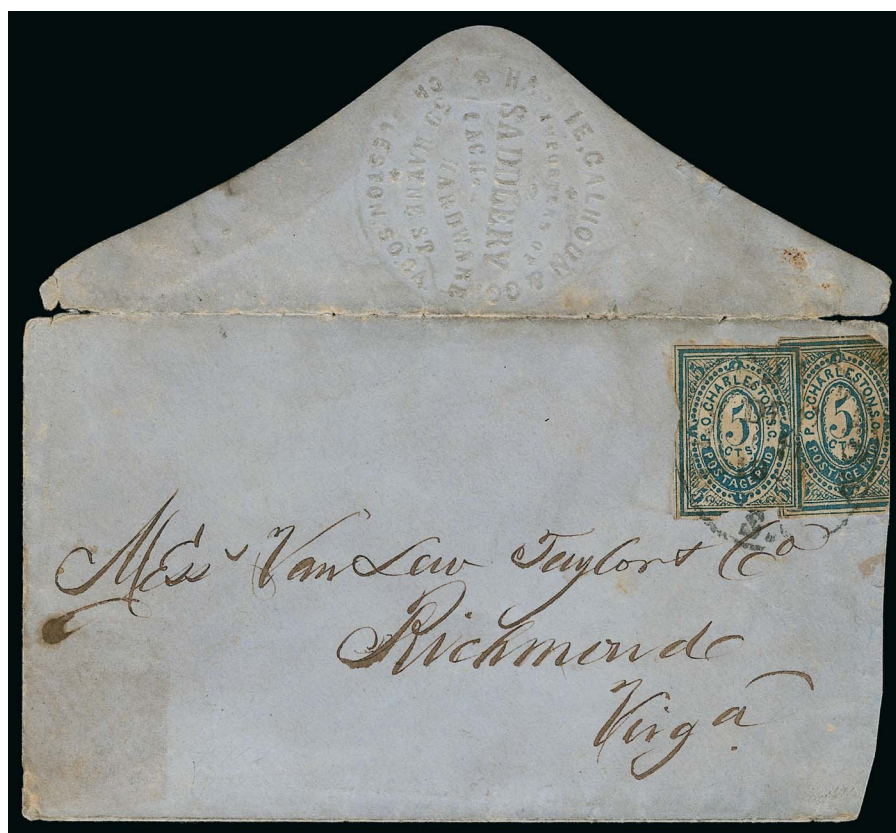 & CO.
CALHOUN
IMPORTERS OF
SADDLERY
HARDWARE
HAYNE ST
P.O. CHARLESTON, S.C.
5
CTS.
POSTAGE PAID
P.O. CHARLESTON, S.C.
5
CTS.
POSTAGE PAID
Mess Van Lew Taylor & Co
Richmond
Virga